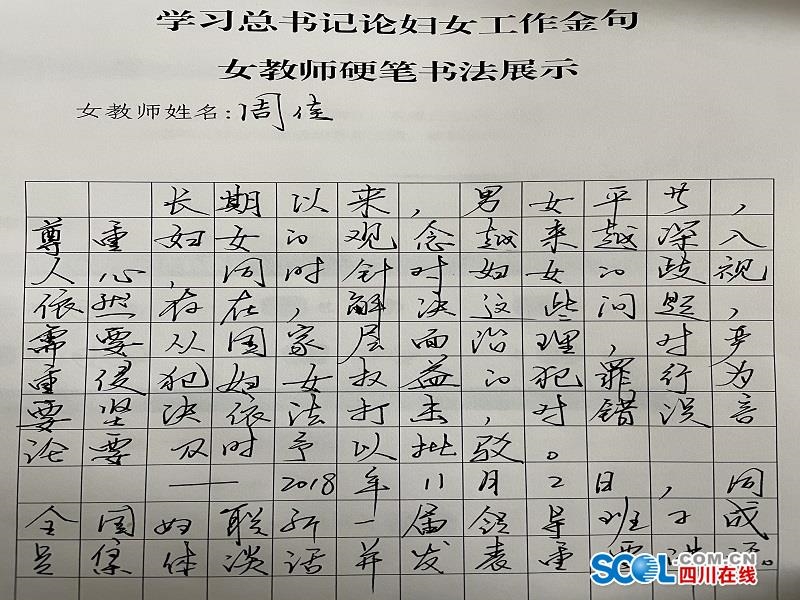 学习总书记论妇女工作金句
女教师硬笔书法展示
女教师姓名:周佳
长期以来,男女平等,
尊重妇女的观念越来越深入
人心,同时针对妇女的歧视
依然存在,解决这些问题,
需要从国家层面治理,对严
重侵犯妇女权益的犯罪行为
要坚决依法打击,对错误言
论要及时予以批驳。
——2018年11月2日,同
全国妇联新一届领导班子成
员集体谈话并发表重要讲话。
SCOL.COM.CN
四川在线